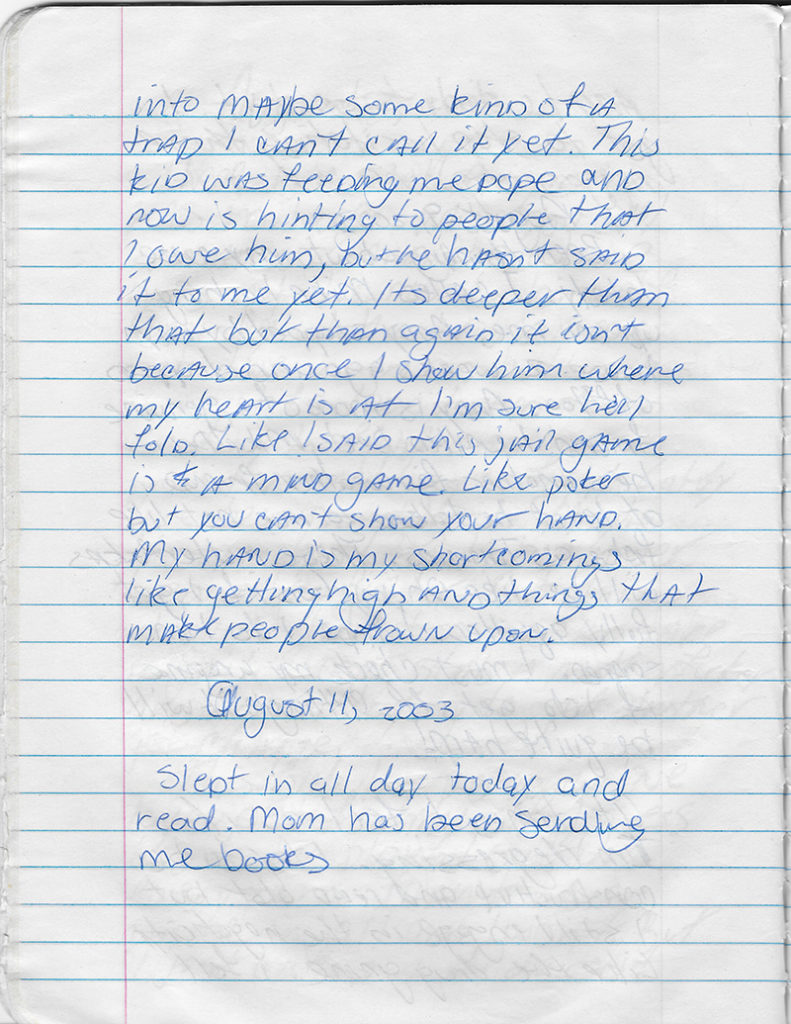 into maybe some kind of a
trap I can't call it yet. This
kid was feeding me dope and
now is hinting to people that
I owe him, but he hasn't said
it to me yet. Its deeper than
that but than again it isn't
because once I show him where
my heart is at I'm sure hell
fold. Like I said this jail game
is a mind game. Like poker
but you can't show your hand.
My hand is my shortcomings
like getting high and things that
make people frown upon.
August 11, 2003
Slept in all day today and
read. Mom has been sending
me books